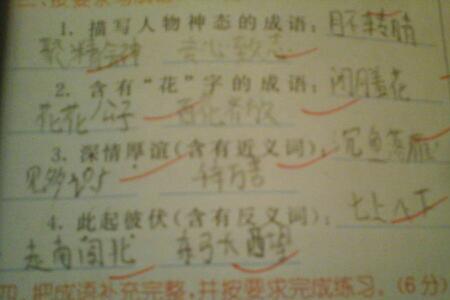 1. 描写人物神态的成语: 目不转睛
聚精会神 专心致志
2. 含有“花”字的成语: 闭月羞花
花花公子 百花齐放
3. 深情厚谊(含有近义词): 沉鱼落雁
见多识
4. 此起彼伏(含有反义词): 七上八下
走南闯北 东
四、把成语补充完整,并按要求完成练习。(6分)